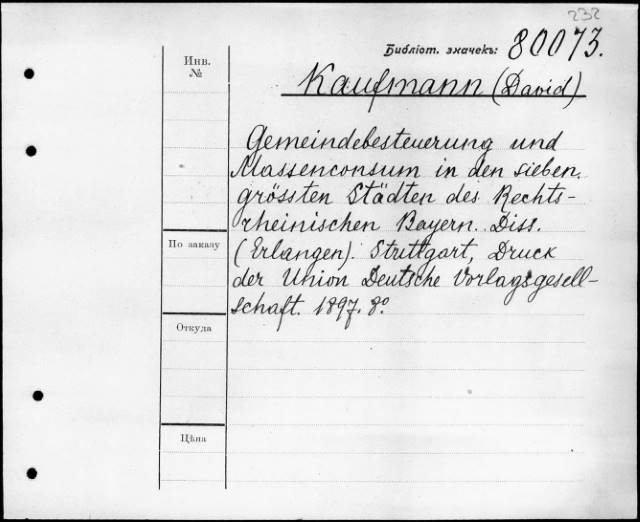 232
Библіот. значекъ: 80073.
Инв.
№
Kaufmann (David)
Gemeindebesteuerung und
Massenconsum in den sieben
grössten Städten des Rechts-
rheinischen Bayern. Diss.
По заказу
(Erlangen). Stuttgart, Druck
der Union Deutsche Vorlagsgesell-
schaft. 1897. 8°.
Откуда
Цѣна